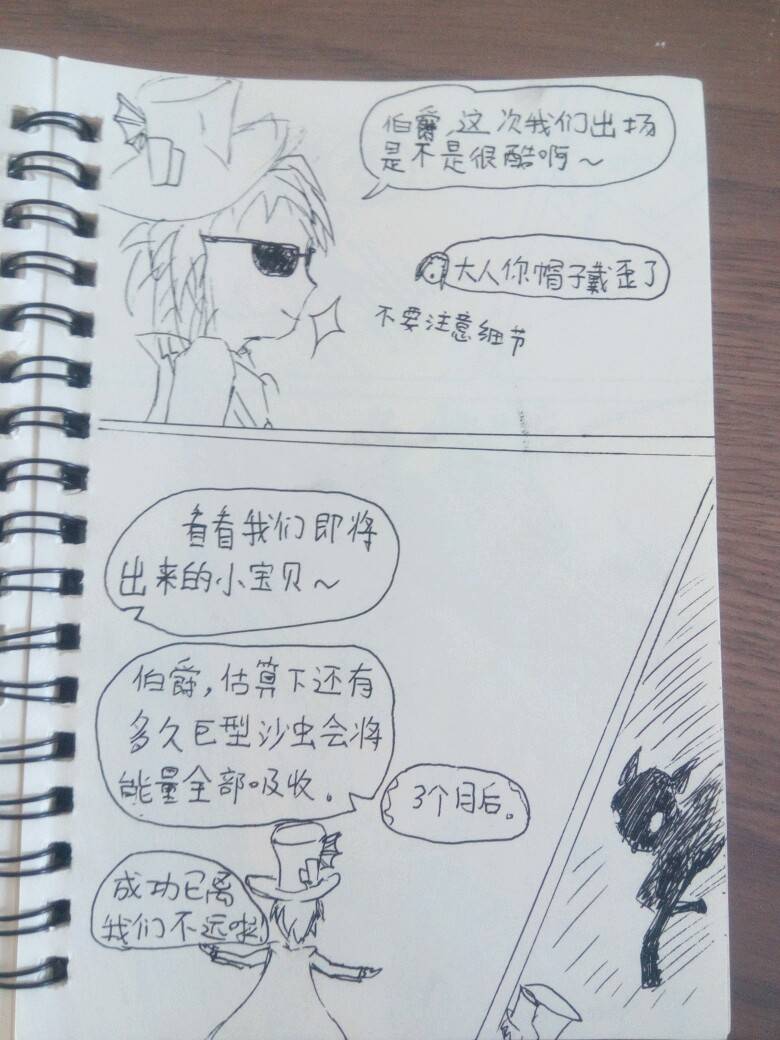 伯爵,这次我们出场
是不是很酷啊~
大人你帽子戴歪了
不要注意细节
看看我们即将
出来的小宝贝~
伯爵,估算下还有
多久巨型沙虫会将
能量全部吸收。
3个月后。
成功已离
我们不远啦!